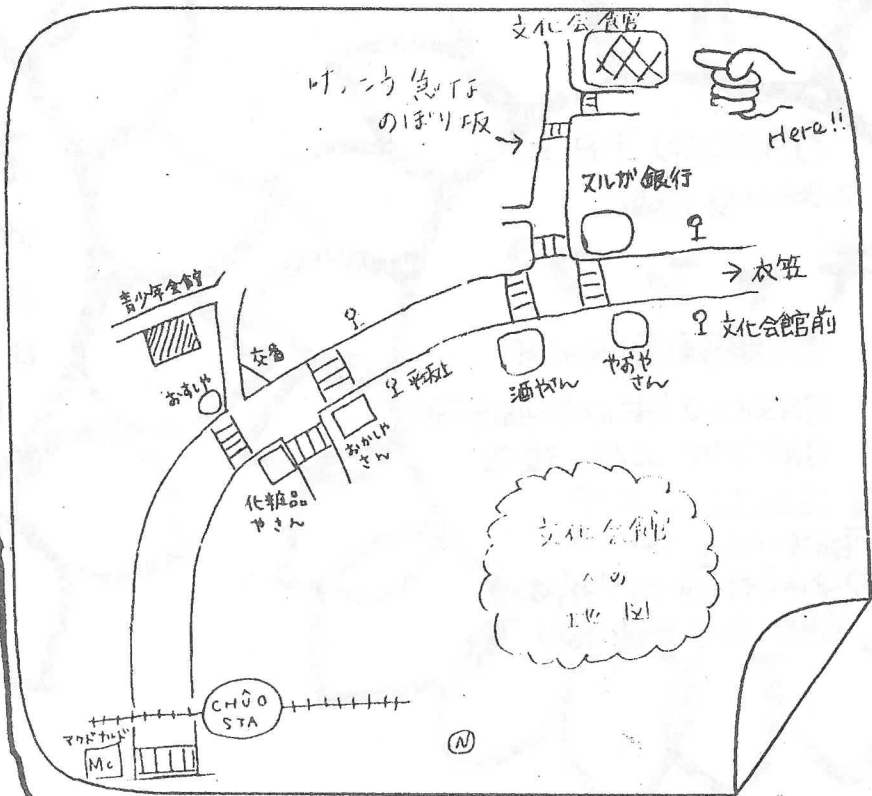 文化会館
けっこう急な
のぼり坂
Here!!
スルガ銀行
→ 衣笠
文化会館前
青少年会館
交番
おすしや
酒やさん
やおや
さん
平坂上
おかしや
さん
化粧品
やさん
文化会館
への
地図
CHÛO
STA
マクドナルド
Mc
N